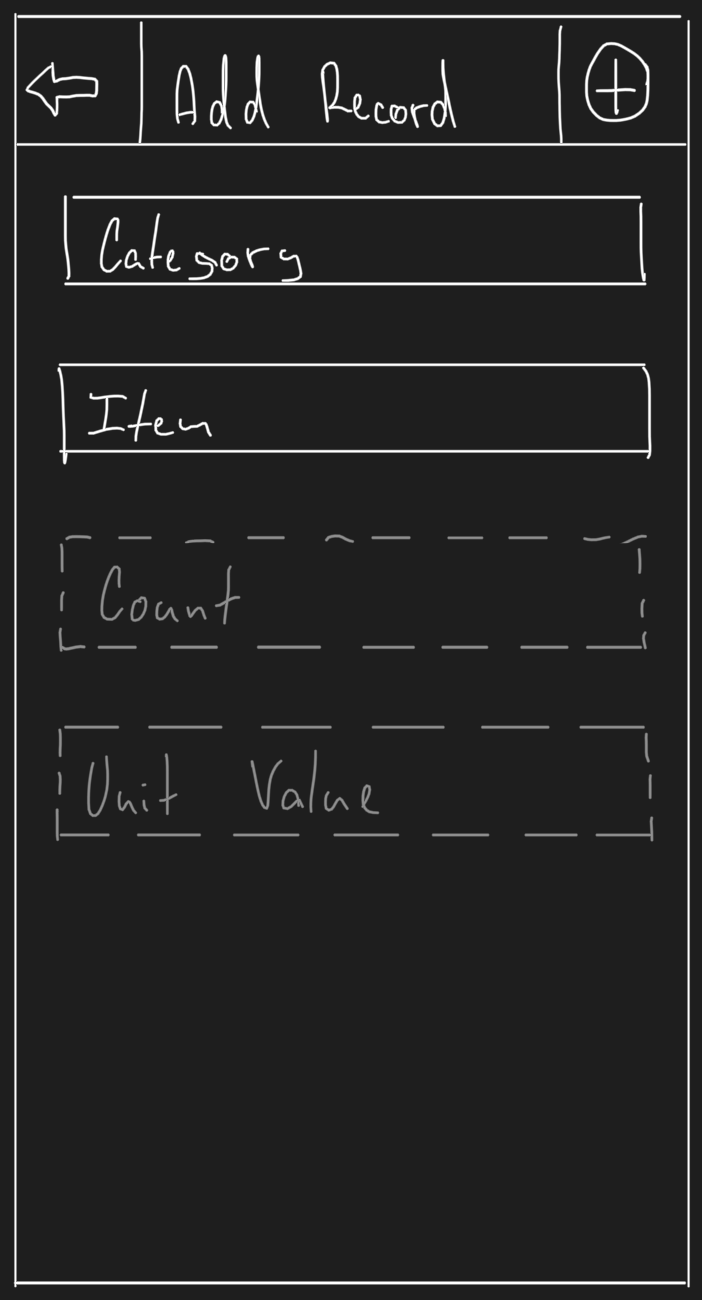 Add Record
Category
Item
Count
Unit Value